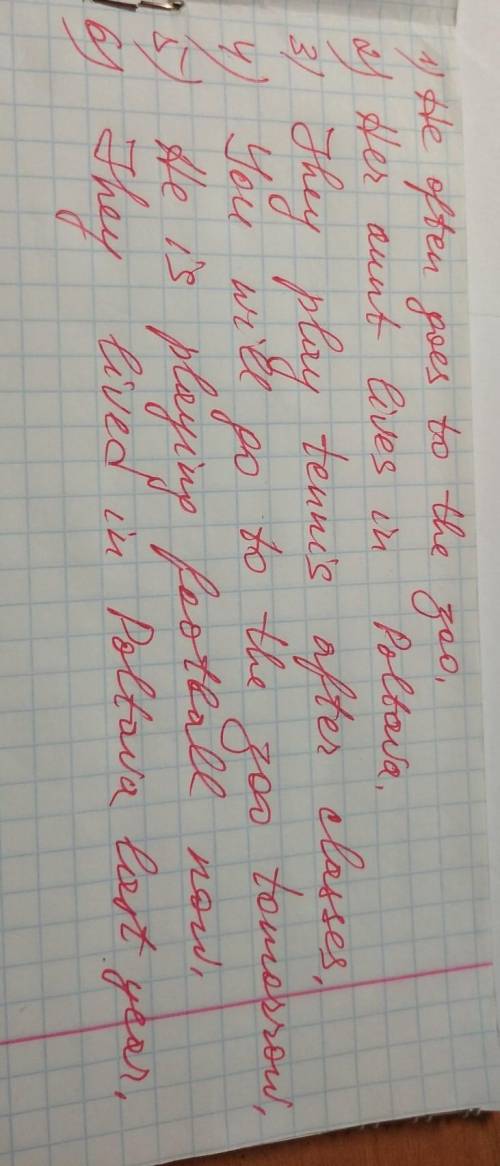 1) He often goes to the zoo.
2) Her aunt lives in Poltava.
3) They play tennis after classes.
4) You will go to the zoo tomorrow.
5) He is playing football now.
6) They lived in Poltava last year.